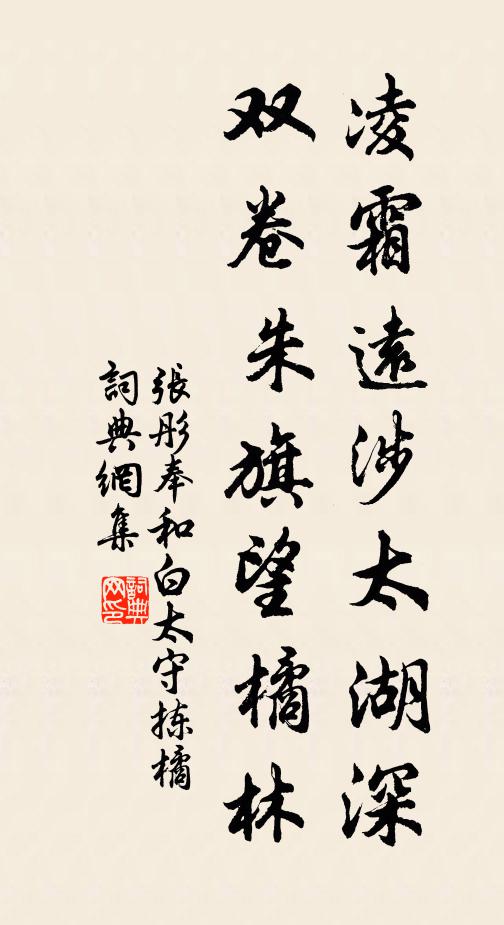 凌霜遠涉太湖深
双卷朱旗望橘林
張彤奉和白太守拣橘
詞典網集
詞典網印